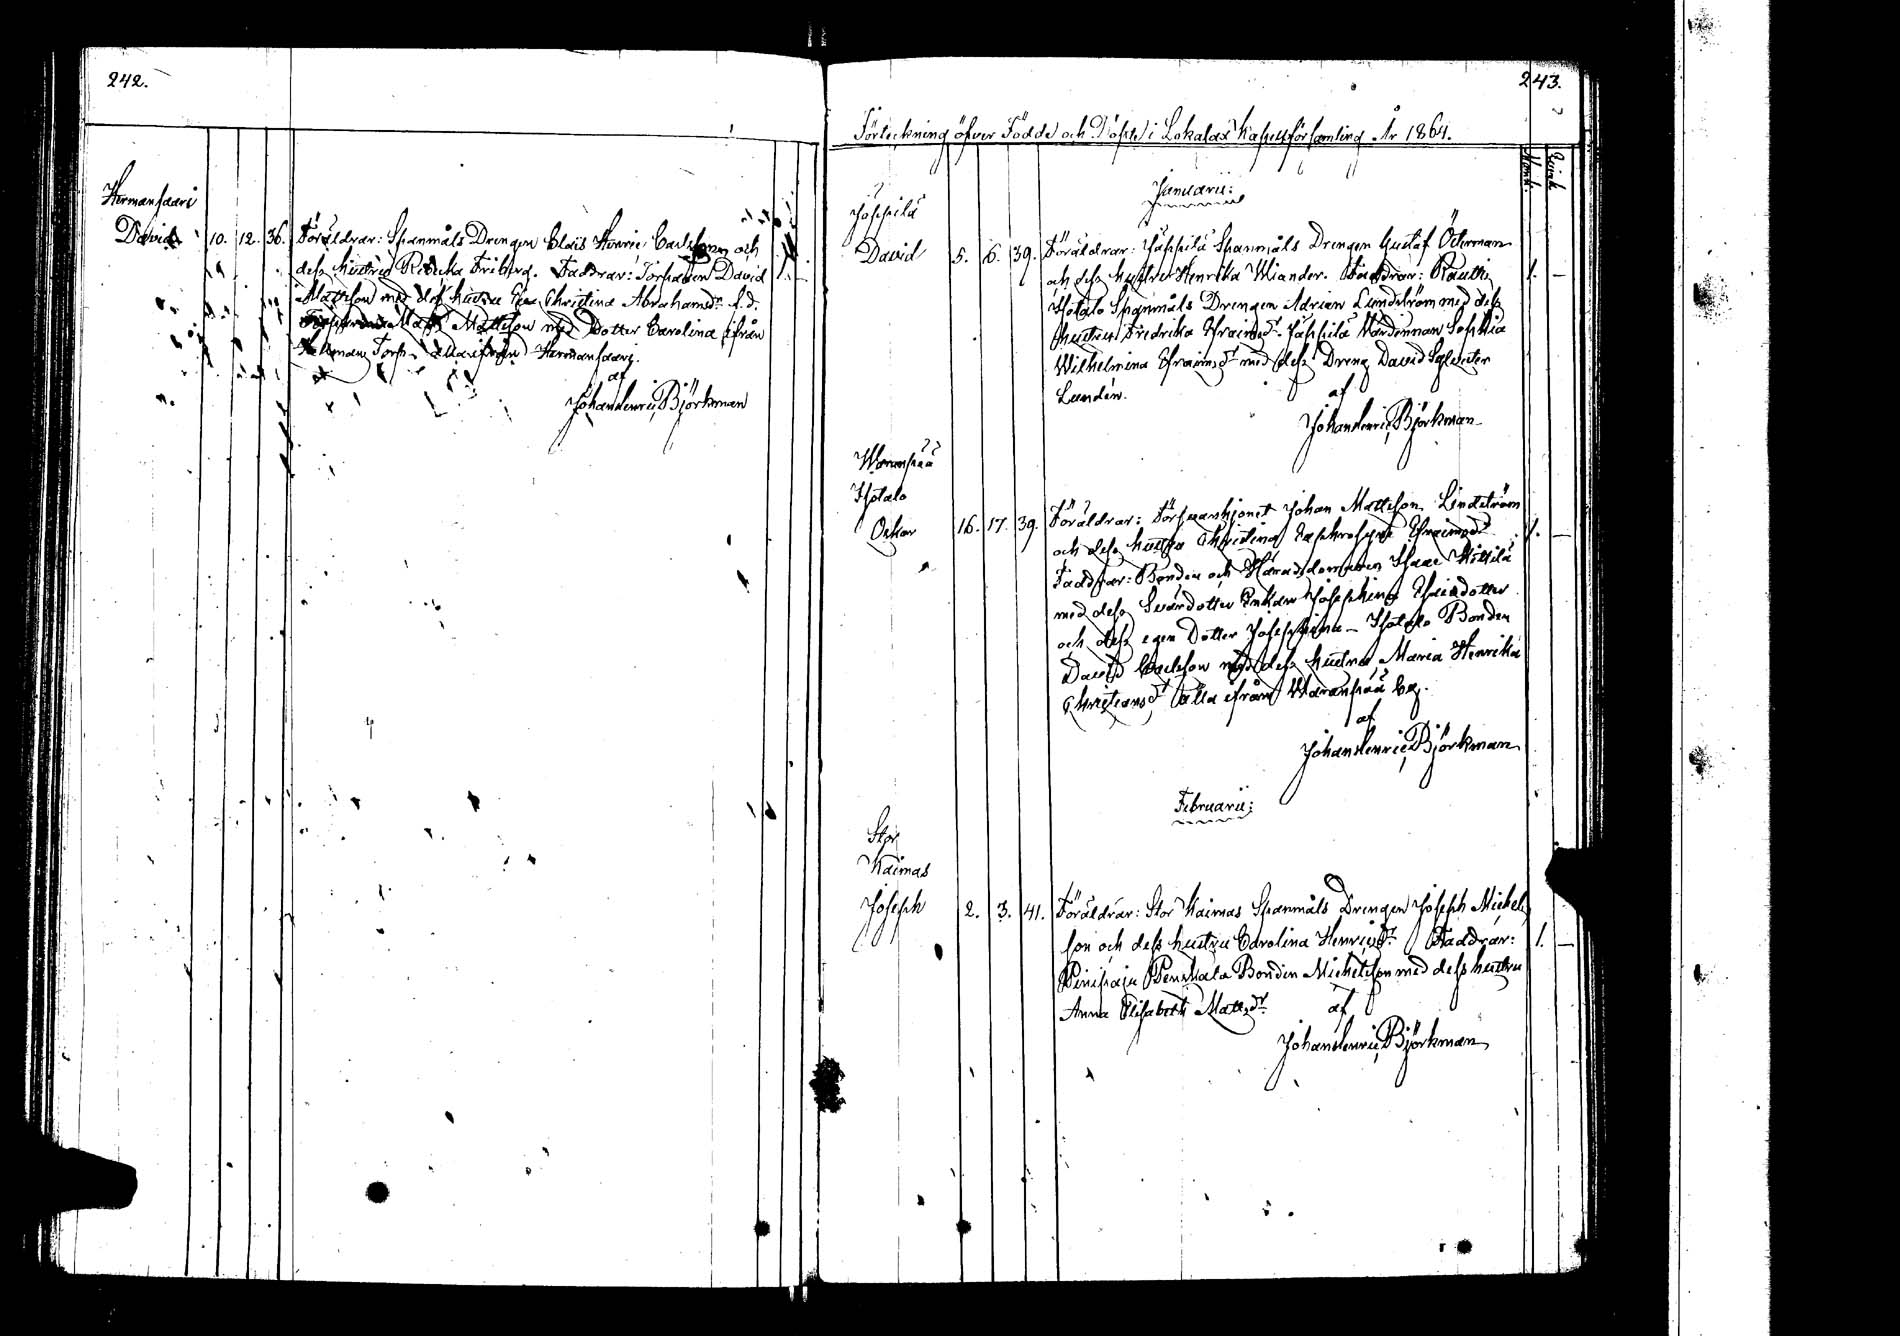 242.
Hermansaari
David 10. 12. 36. Föräldrar: Spanmåls Drengen Claës Henric Carlsson och
dess hustru Rebecka Friberg. Faddrar: Torparen David 1. –
Mattsson med dess hustru Eva Christina Abrahamsdr. f.d.
Matts Mattsson med Dotter Carolina ifrån
Torp. alla ifrån Hermansaari.
af
Johan Henric Björkman
243.
Förteckning öfver Födde och Döpte i Lokalax Kapellförsamling År 1864.
Mank. Qvink.
Januarii:
Jäppilä
David 5. 6. 39. Föräldrar: Jäppilä Spanmåls Drengen Gustaf Österman
och dess hustru Henrika Wiander. Faddrar: Rautila 1. –
Isotalo Spanmåls Drengen Adrian Lundström med dess
hustru Fredrika Efraimsdr. Jäppilä Värdinnan Sophia
Wilhelmina Efraimsdr med dess Dreng David Sylvester
Lundén.
af
Johan Henric Björkman
Waranpää
Isotalo
Oskar 16. 17. 39. Föräldrar: Försvarshjonet Johan Mattsson Lindström
och dess hustru Christina Euphrosyne Efraimsdr 1. –
Faddrar: Bonden och Häradsdomaren Isaac Hittilä
med dess Svärdotter Enkan Josephina Esaiadotter
och dess egen Dotter Josephina – Isotalo Bonden
David Carlsson med dess hustru Maria Henrika
Christiansdr alla ifrån Waranpää by.
af
Johan Henric Björkman
Februarii:
Stor
Kaimas
Joseph 2. 3. 41. Föräldrar: Stor Kaimas Spanmåls Drengen Joseph Michels
son och dess hustru Carolina Henricsdr. Faddrar: 1. –
Bonden Michelsson med dess hustru
Anna Elisabeth Mattsdr. af
Johan Henric Björkman